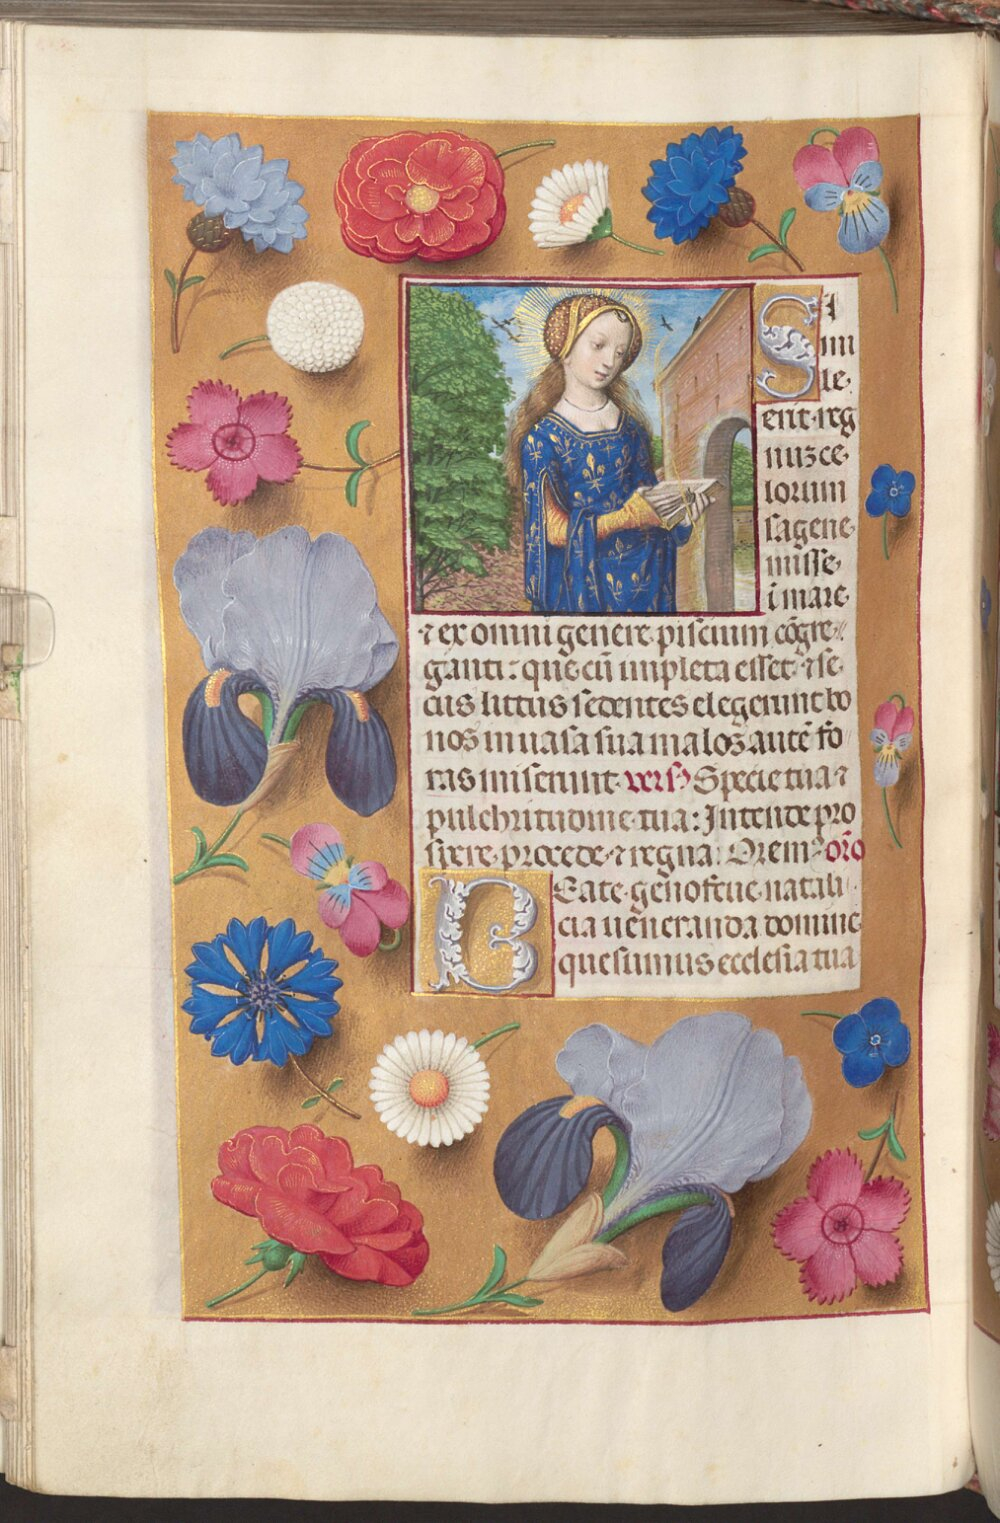 Si
mi
le·
erit· reg
nuʒ ce·
lorum
sagene·
misse·
ī mare·
⁊ ex omni genere· piscium cōgre·
ganti: que cū impleta esset· ⁊ se·
cus littus sedentes elegerunt bo
nos in uasa sua malos autē fo
ras miserunt· vers Specie tua ⁊
pulchritudine· tua: Intende pro
spere· procede· ⁊ regna: Orem⁹ orō
BEate· genofeue· natali·
cia ueneranda domine·
quesumus ecclesia tua